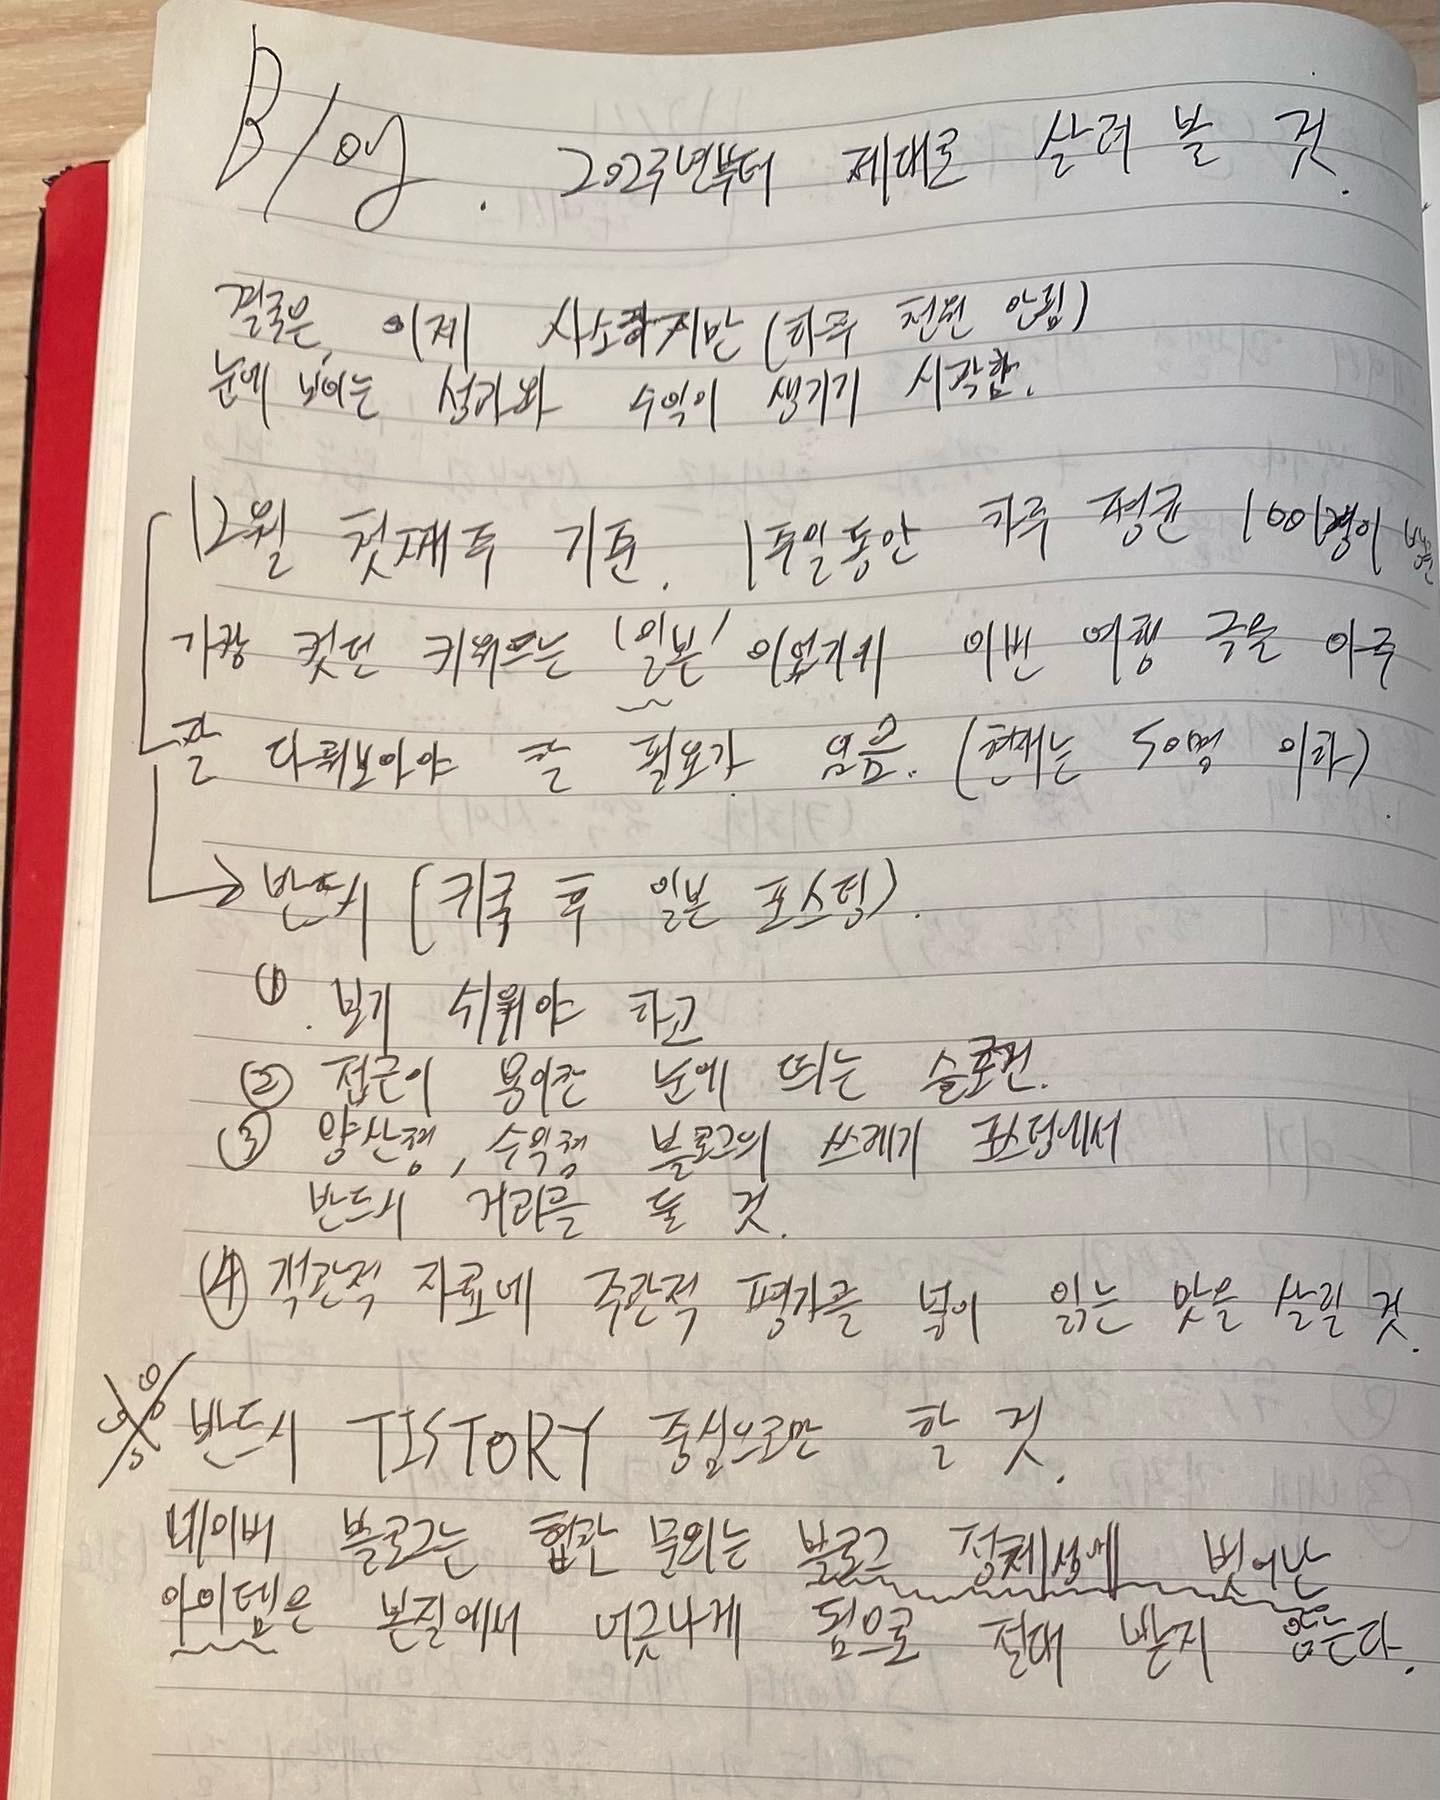 Blog. 2023년부터 제대로 살려 볼 것.
결국은, 이제 사소하지만 (하루 천원 안됨)
눈에 보이는 성과와 수익이 생기기 시작함.
12월 첫째주 기준. 1주일동안 하루 평균 1001명이 방문
가장 컸던 키워드는 '일본' 이었기에 이번 여행 극을 아주
잘 다뤄보아야 할 필요가 있음. (현재는 50명 이하)
반드시 (귀국 후 일본 포스팅).
① 보기 쉬워야 하고
② 접근이 용이한 눈에 띄는 슬로건.
③ 양산형, 수익형 블로그의 쓰레기 포스팅에서
반드시 거리를 둘 것.
④ 객관적 자료에 주관적 평가를 넣어 읽는 맛을 살릴 것.
※ 반드시 TISTORY 중심으로만 할 것.
네이버 블로그는 협찬 문의는 블로그 정체성에 벗어난
아이템은 본질에서 어긋나게 됨으로 절대 받지 않는다.